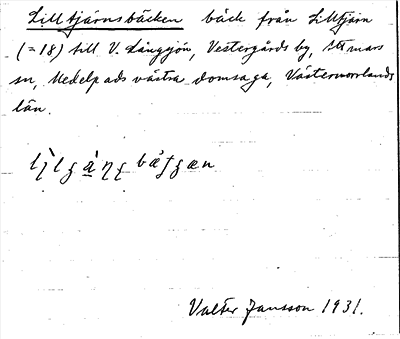 Lilltjärnsbäcken bäck från Lilltjärn
(=18) till V. Långsjön, Vestergårds by, Attmars
sn, Medelpads västra domsaga, Västernorrlands
län.
Valter Jansson 1931.